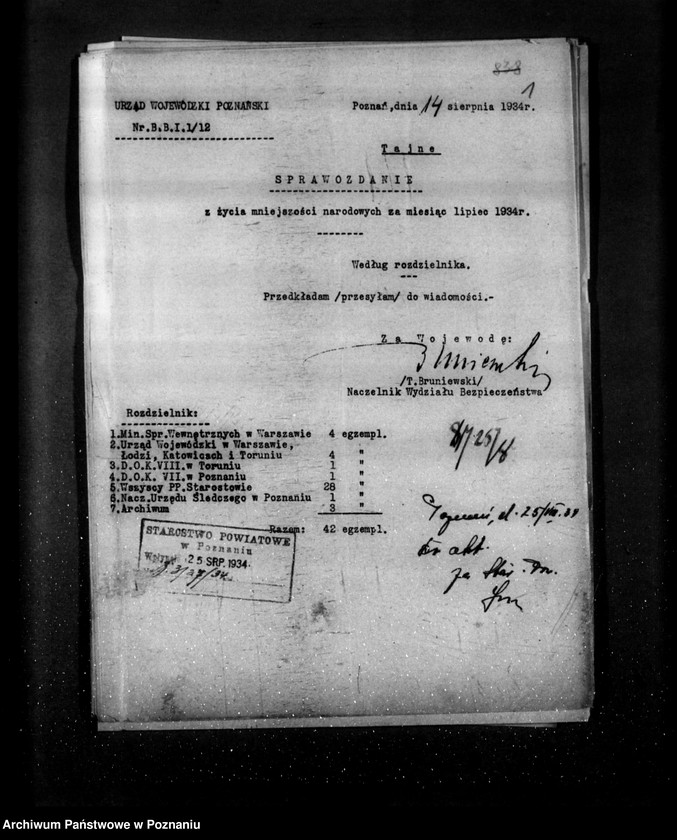 828
1
URZĄD WOJEWÓDZKI POZNAŃSKI
Poznań, dnia 14 sierpnia 1934r.
Nr.B.B.I.1/12
Tajne
SPRAWOZDANIE
z życia mniejszości narodowych za miesiąc lipiec 1934r.
Według rozdzielnika.
Przedkładam /przesyłam/ do wiadomości.-
Za Wojewodę:
/T.Bruniewski/
Naczelnik Wydziału Bezpieczeństwa
Rozdzielnik:
1.Min.Spr.Wewnętrznych w Warszawie 4 egzempl.
2.Urząd Wojewódzki w Warszawie,
Łodzi, Katowicach i Toruniu 4 "
3.D.O.K.VIII.w Toruniu 1 "
4.D.O.K. VII.w Poznaniu 1 "
5.Wszyscy PP.Starostowie 28 "
6.Nacz.Urzędu Śledczego w Poznaniu 1 "
7.Archiwum 3 "
Razem: 42 egzempl.
STAROSTWO POWIATOWE
w Poznaniu
25 SRP. 1934
25/VIII.34
akt.
Archiwum Państwowe w Poznaniu